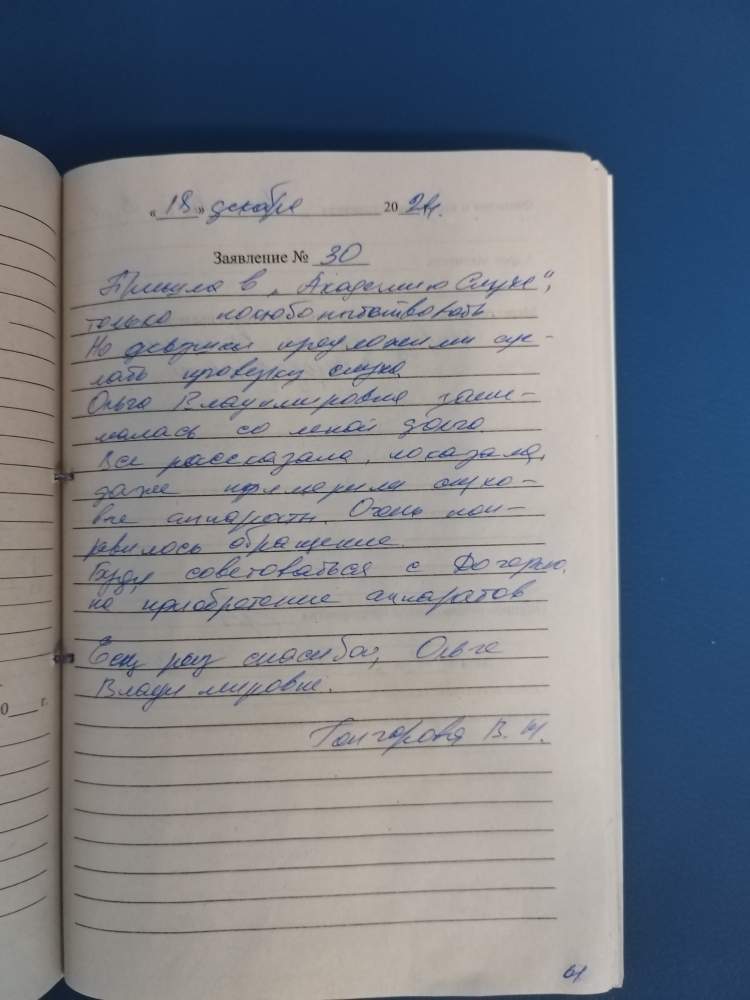 «18» декабря 2024г.
Заявление № 30
Пришла в „Академию Слуха",
только полюбопытствовать.
Но девушки предложили сде-
лать проверку слуха
Ольга Владимировна зани-
малась со мной долго.
Все рассказала, показала,
даже примерили слухо-
вые аппараты. Очень пон-
равилось обращение.
Буду советоваться с дочерью,
на приобретение аппаратов
Ещё раз спасибо, Ольге
Владимировне.
Гончарова В. И.
0 г.
61